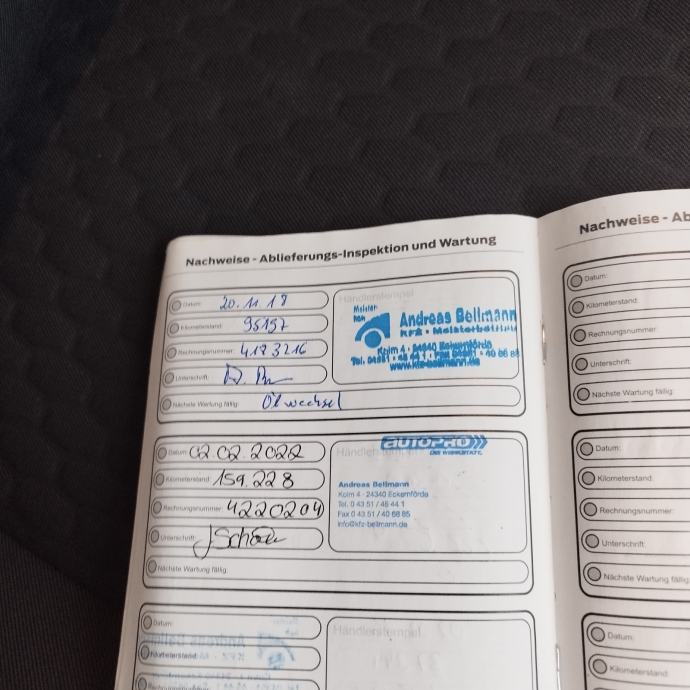 Nachweise - Ablieferungs-Inspektion und Wartung
Datum: 20.11.19
Kilometerstand: 95157
Rechnungsnummer: 4193216
Unterschrift:
Nächste Wartung fällig: Ölwechsel
Händlerstempel
Meister
Andreas Bellmann
KFZ - Meisterbetrieb
Kolm 4 · 24340 Eckernförde
www.kfz-bellmann.de
Datum: 02.02.2022
Kilometerstand: 159.228
Rechnungsnummer: 4220204
Unterschrift:
Nächste Wartung fällig:
AUTOPRO
DIE WERKSTATT.
Andreas Bellmann
Kolm 4 - 24340 Eckernförde
Tel. 0 43 51 / 46 44 1
Fax 0 43 51 / 40 68 85
info@kfz-bellmann.de
Datum:
Kilometerstand:
Rechnungsnummer:
Händlerstempel
Nachweise - Ab
Datum:
Kilometerstand:
Rechnungsnummer:
Unterschrift:
Nächste Wartung fällig:
Datum:
Kilometerstand:
Rechnungsnummer:
Unterschrift:
Nächste Wartung fällig:
Datum:
Kilometerstand: